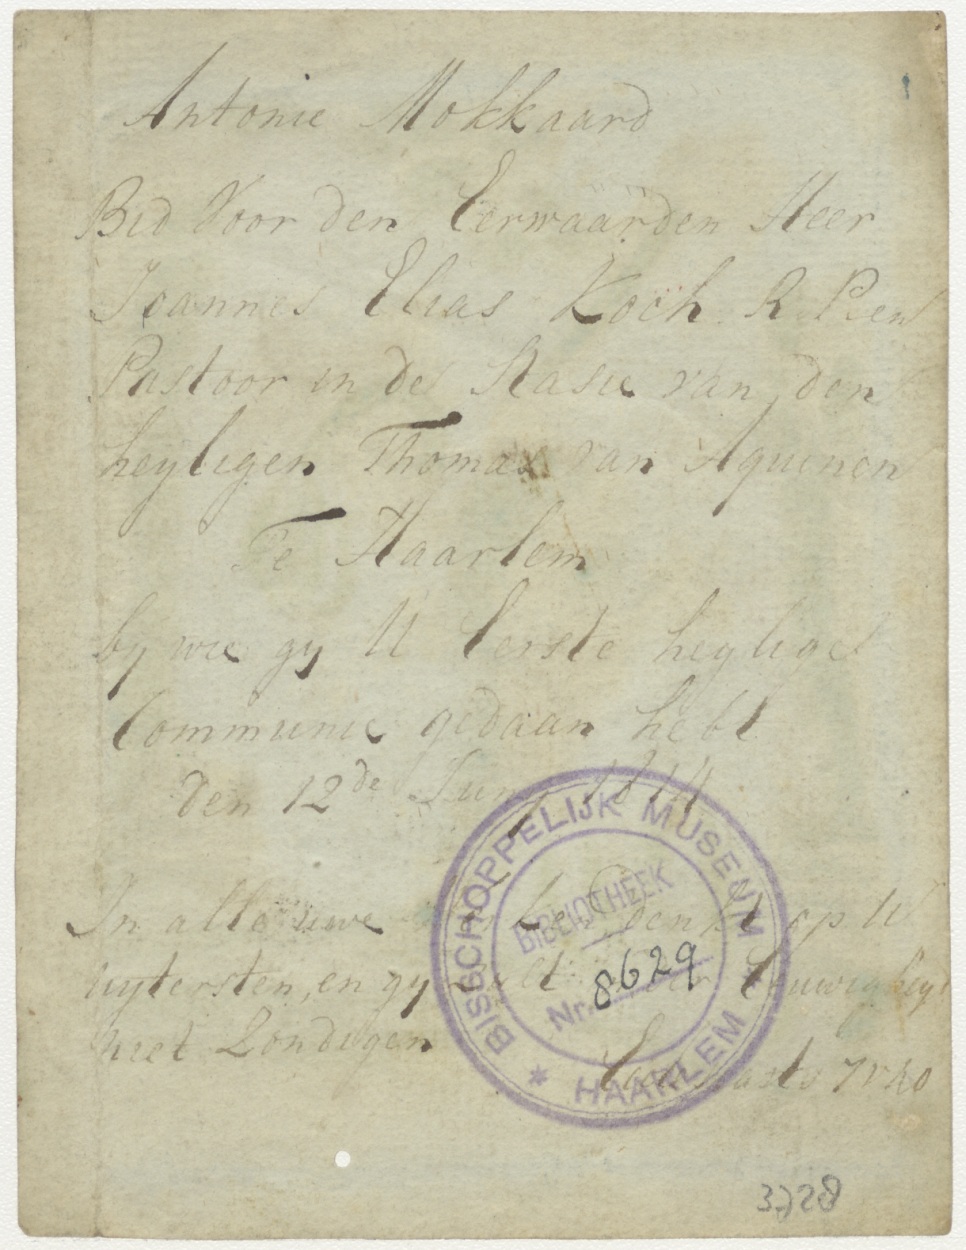 Antonie Mokkaard
Bid Voor den Eerwaarden Heer
Joannes Elias Koch R. P. en
Pastoor in de Stasie van den
heyligen Thomas van Aquinen
Te Haarlem
by wie gy U Eerste heylige
Communie gedaan hebt
den 12de Juny 1814
In alle uwe op U
uytersten, en gy Eeuwigheyd
niet Zondigen
7 v 40
BISSCHOPPELIJK MUSEUM
HAARLEM
BIBLIOTHEEK
Nr. 8629
3728